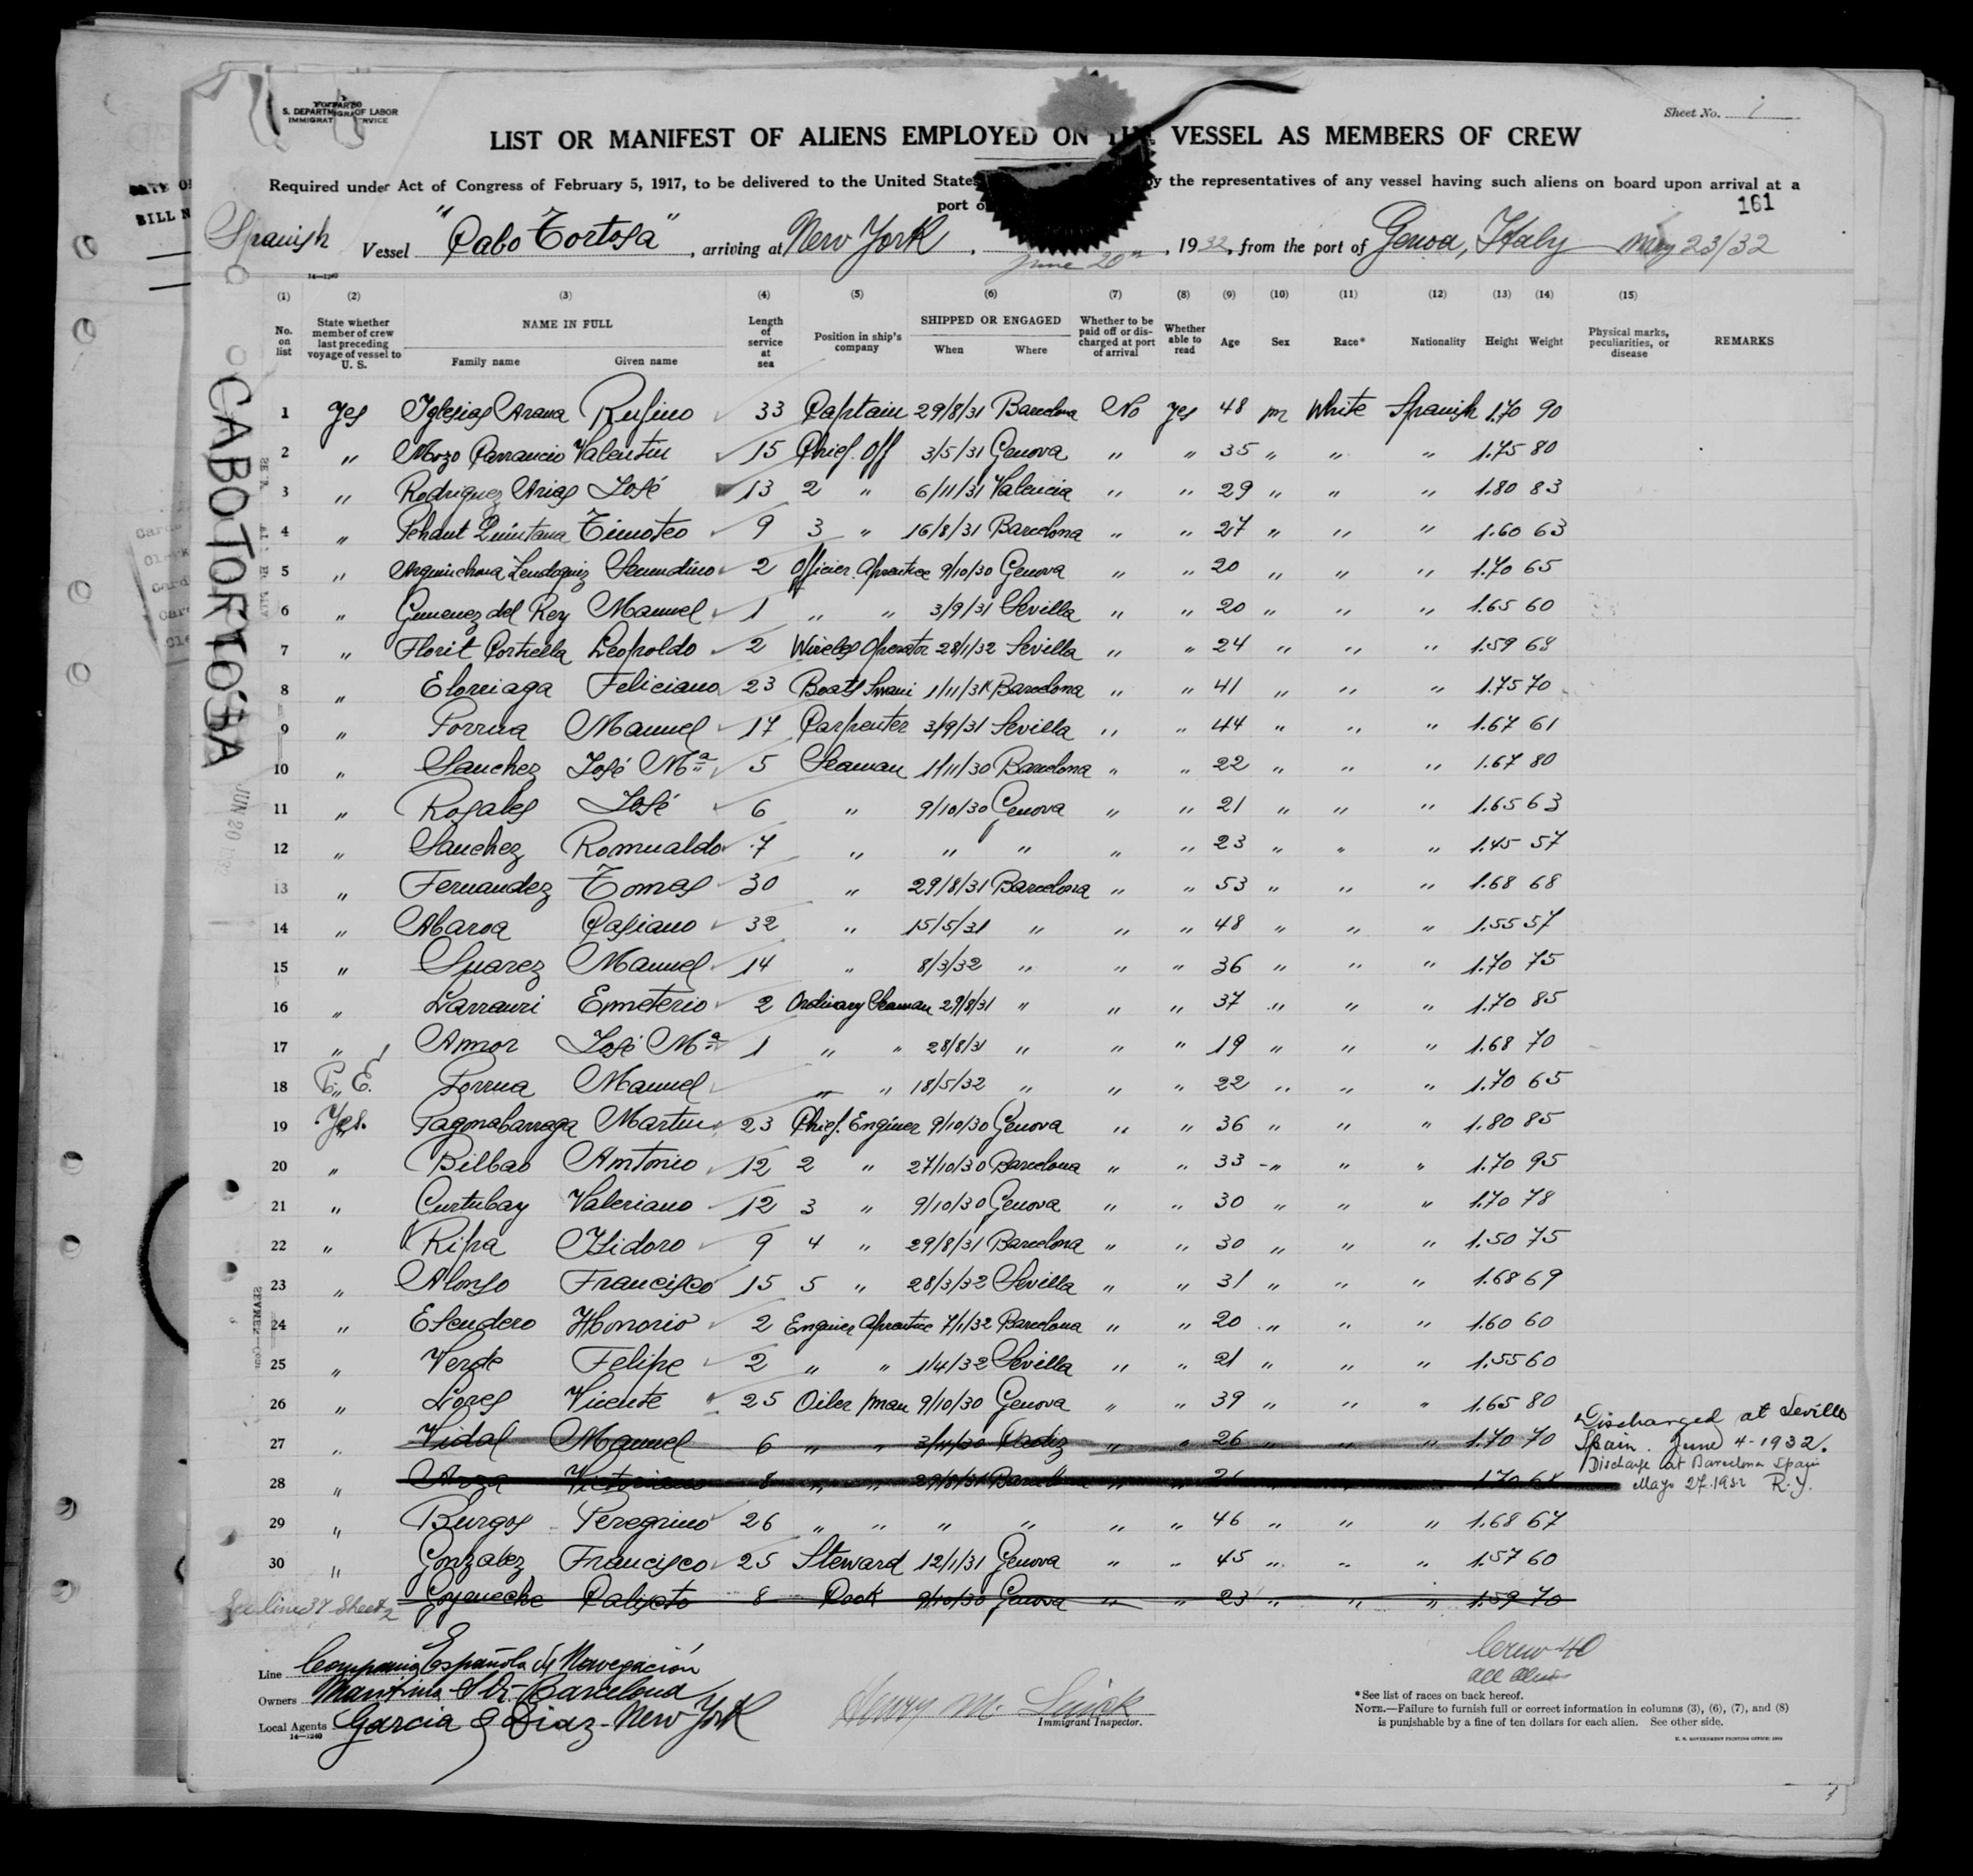 S. DEPARTMENT OF LABOR
IMMIGRAT RVICE
Sheet No. 1
LIST OR MANIFEST OF ALIENS EMPLOYED ON THE VESSEL AS MEMBERS OF CREW
Required under Act of Congress of February 5, 1917, to be delivered to the United States by the representatives of any vessel having such aliens on board upon arrival at a
port o
161
Spanish Vessel "Cabo Tortosa", arriving at New York, June 20th, 1932, from the port of Genoa, Italy May 23/32
14—1240
(1) (2) (3) (4) (5) (6) (7) (8) (9) (10) (11) (12) (13) (14) (15)
No. on list State whether member of crew last preceding voyage of vessel to U. S. NAME IN FULL Family name Given name Length of service at sea Position in ship's company SHIPPED OR ENGAGED When Where Whether to be paid off or discharged at port of arrival Whether able to read Age Sex Race* Nationality Height Weight Physical marks, peculiarities, or disease REMARKS
CABO TORTOSA
1 Yes Iglesias Arana Rufino 33 Captain 29/8/31 Barcelona No Yes 48 m White Spanish 1.70 90
2 " Mozo Carrancio Valentin 15 Chief Off 3/5/31 Genova " " 35 " " " 1.75 80
3 " Rodriguez Arias José 13 2 " 6/11/31 Valencia " " 29 " " " 1.80 83
4 " Quintana Timoteo 9 3 " 16/8/31 Barcelona " " 27 " " " 1.60 63
5 " Secundino 2 Officier Aprentice 9/10/30 Genova " " 20 " " " 1.70 65
6 " Gimenez del Rey Manuel 1 " " 3/9/31 Sevilla " " 20 " " " 1.65 60
7 " Florit Portella Leopoldo 2 Wireles Operator 28/1/32 Sevilla " " 24 " " " 1.59
8 " Elorriaga Feliciano 23 Boats Swain Barcelona " " 41 " " " 1.75 70
9 " Porrua Manuel 17 Carpenter 3/9/31 Sevilla " " 44 " " " 1.67 61
10 " Sanchez José Mª 5 Seaman 1/11/30 Barcelona " " 22 " " " 1.67 80
11 " Rosales José 6 " 9/10/30 Genova " " 21 " " " 1.65 63
12 " Sanchez Romualdo 7 " " " " " 23 " " " 1.45 57
13 " Fernandez Tomas 30 " 29/8/31 Barcelona " " 53 " " " 1.68 68
14 " Abaroa Casiano 32 " 15/5/31 " " " 48 " " " 1.55 57
15 " Suarez Manuel 14 " 8/3/32 " " " 36 " " " 1.70 75
16 " Larrauri Emeterio 2 Ordinary Seaman 29/8/31 " " " 37 " " " 1.70 85
17 " Amor José Mª 1 " " 28/8/31 " " " 19 " " " 1.68 70
18 Porrua Manuel " " 18/5/32 " " " 22 " " " 1.70 65
19 Yes. Pagonabarraga Martin 23 Chief Enginer 9/10/30 Genova " " 36 " " " 1.80 85
20 " Bilbao Antonio 12 2 " 27/10/30 Barcelona " " 33 " " " 1.70 95
21 " Curtubay Valeriano 12 3 " 9/10/30 Genova " " 30 " " " 1.70 78
22 " Ripa Isidoro 9 4 " 29/8/31 Barcelona " " 30 " " " 1.50 75
23 " Alonso Francisco 15 5 " 28/3/32 Sevilla " " 31 " " " 1.68 69
24 " Escudero Honorio 2 Enginer Aprentice 7/1/32 Barcelona " " 20 " " " 1.60 60
25 " Verde Felipe 2 " " 1/4/32 Sevilla " " 21 " " " 1.55 60
26 " Lores Vicente 25 Oiler man 9/10/30 Genova " " 39 " " " 1.65 80
27 " Vidal Manuel 6 " " Cadiz " " 26 " " " 1.70 70 Discharged at Sevilla Spain. June 4-1932.
28 " 8 " " 29/8/31 Barcelona Discharge at Barcelona Spain Mayo 27.1932 R.Y.
29 " Burgos Peregrino 26 " " " " " " 46 " " " 1.68 67
30 " Gonzalez Francisco 25 Steward 12/1/31 Genova " " 45 " " " 1.57 60
See line 37 Sheet 2 Goyeneche Calixto 8 Cook 9/10/30 Genova " " 23 " " " 1.59 70
Line Compania Española de Navegación
Owners Maritima S A Barcelona
Local Agents Garcia & Diaz - New York
14—1240
Henry M.
Immigrant Inspector.
Crew 40
all aliens
*See list of races on back hereof.
NOTE.—Failure to furnish full or correct information in columns (3), (6), (7), and (8)
is punishable by a fine of ten dollars for each alien. See other side.
U. S. GOVERNMENT PRINTING OFFICE